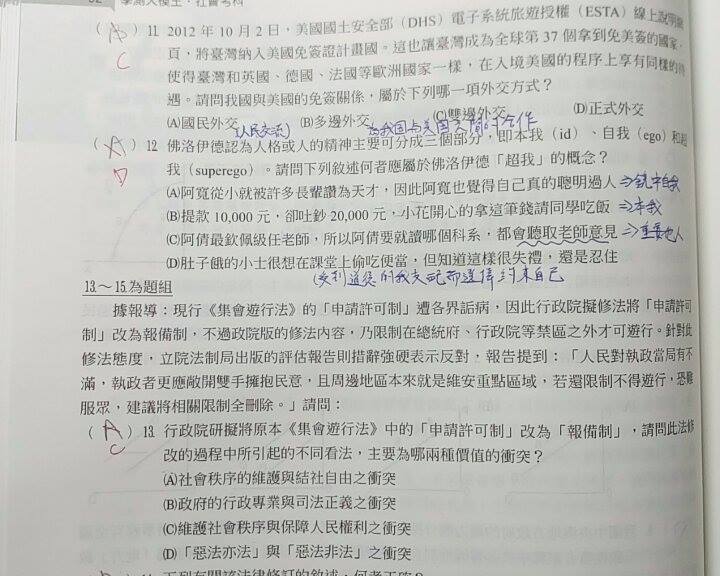 學測大模王．社會考科
(A) 11 2012 年 10 月 2 日，美國國土安全部（DHS）電子系統旅遊授權（ESTA）線上說明網
C 頁，將臺灣納入美國免簽證計畫國。這也讓臺灣成為全球第 37 個拿到免美簽的國家，
使得臺灣和英國、德國、法國等歐洲國家一樣，在入境美國的程序上享有同樣的待
遇。請問我國與美國的免簽關係，屬於下列哪一項外交方式？
(A)國民外交 (B)多邊外交 (C)雙邊外交 (D)正式外交
(人民交流) 為我國与美国之間的合作
(A) 12 佛洛伊德認為人格或人的精神主要可分成三個部分，即本我（id）、自我（ego）和超
D 我（superego）。請問下列敘述何者應屬於佛洛伊德「超我」的概念？
(A)阿寬從小就被許多長輩讚為天才，因此阿寬也覺得自己真的聰明過人 ⇒鏡中自我
(B)提款 10,000 元，卻吐鈔 20,000 元，小花開心的拿這筆錢請同學吃飯 ⇒本我
(C)阿倩最欽佩級任老師，所以阿倩要就讀哪個科系，都會聽取老師意見 ⇒重要他人
(D)肚子餓的小士很想在課堂上偷吃便當，但知道這樣很失禮，還是忍住
(受到道德的我支配而選擇約束自己
13.～15.為題組
據報導：現行《集會遊行法》的「申請許可制」遭各界詬病，因此行政院擬修法將「申請許可
制」改為報備制，不過政院版的修法內容，乃限制在總統府、行政院等禁區之外才可遊行。針對此
修法態度，立院法制局出版的評估報告則措辭強硬表示反對，報告提到：「人民對執政當局有不
滿，執政者更應敞開雙手擁抱民意，且周邊地區本來就是維安重點區域，若還限制不得遊行，恐難
服眾，建議將相關限制全刪除。」請問：
(A) 13 行政院研擬將原本《集會遊行法》中的「申請許可制」改為「報備制」，請問此法修
C 改的過程中所引起的不同看法，主要為哪兩種價值的衝突？
(A)社會秩序的維護與結社自由之衝突
(B)政府的行政專業與司法正義之衝突
(C)維護社會秩序與保障人民權利之衝突
(D)「惡法亦法」與「惡法非法」之衝突
下列有關該法律修訂的敘述，何者正確？